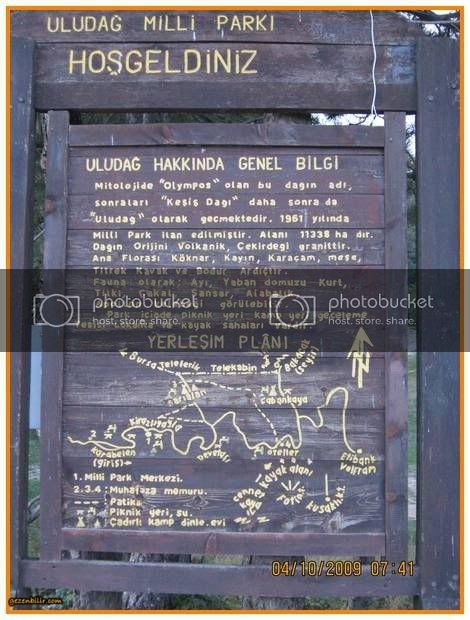 ULUDAG MiLLi PARKI
HOŞGELDiNiZ
ULUDAG HAKKINDA GENEL BiLGi
Mitolojide "Olympos" olan bu dagın adı,
sonraları "Keşiş Dagı" daha sonra da
"Uludag" olarak gecmektedir. 1961 yılında
Milli Park ilan edilmiştir. Alanı 11338 ha dır.
Dagın Orijini Volkanik, Çekirdegi granittir.
Ana Florası Köknar, Kayın, Karaçam, meşe,
Titrek Kavak ve Bodur Ardıçtır.
Fauna olarak: Ayı, Yaban domuzu Kurt,
Tilki, Çakal, Sansar, Alabalık
görülebilir.
Park içinde piknik yeri kamp yeri geceleme
kayak sahaları vardır.
photobucket
host. store. share.
photobucket
host. store. share.
YERLEŞiM PLANI
N
Bursa Teleferik
Telekabin
Bakacak
(Seyir)
Sarıalan
Çobankaya
Kirazlıyayla
Kurabelen
(Giriş)
Develtaş
oteller
Etibank
Volfram
Kayak alanı
cennet
kaya
Tutyeli
kuşaklıkt.
1. Milli Park Merkezi.
2.3.4: Muhafaza memuru.
: Patika
: Piknik yeri, su.
: Çadırlı kamp dinle. evi
04/10/2009 07:41
gezenbilir.com